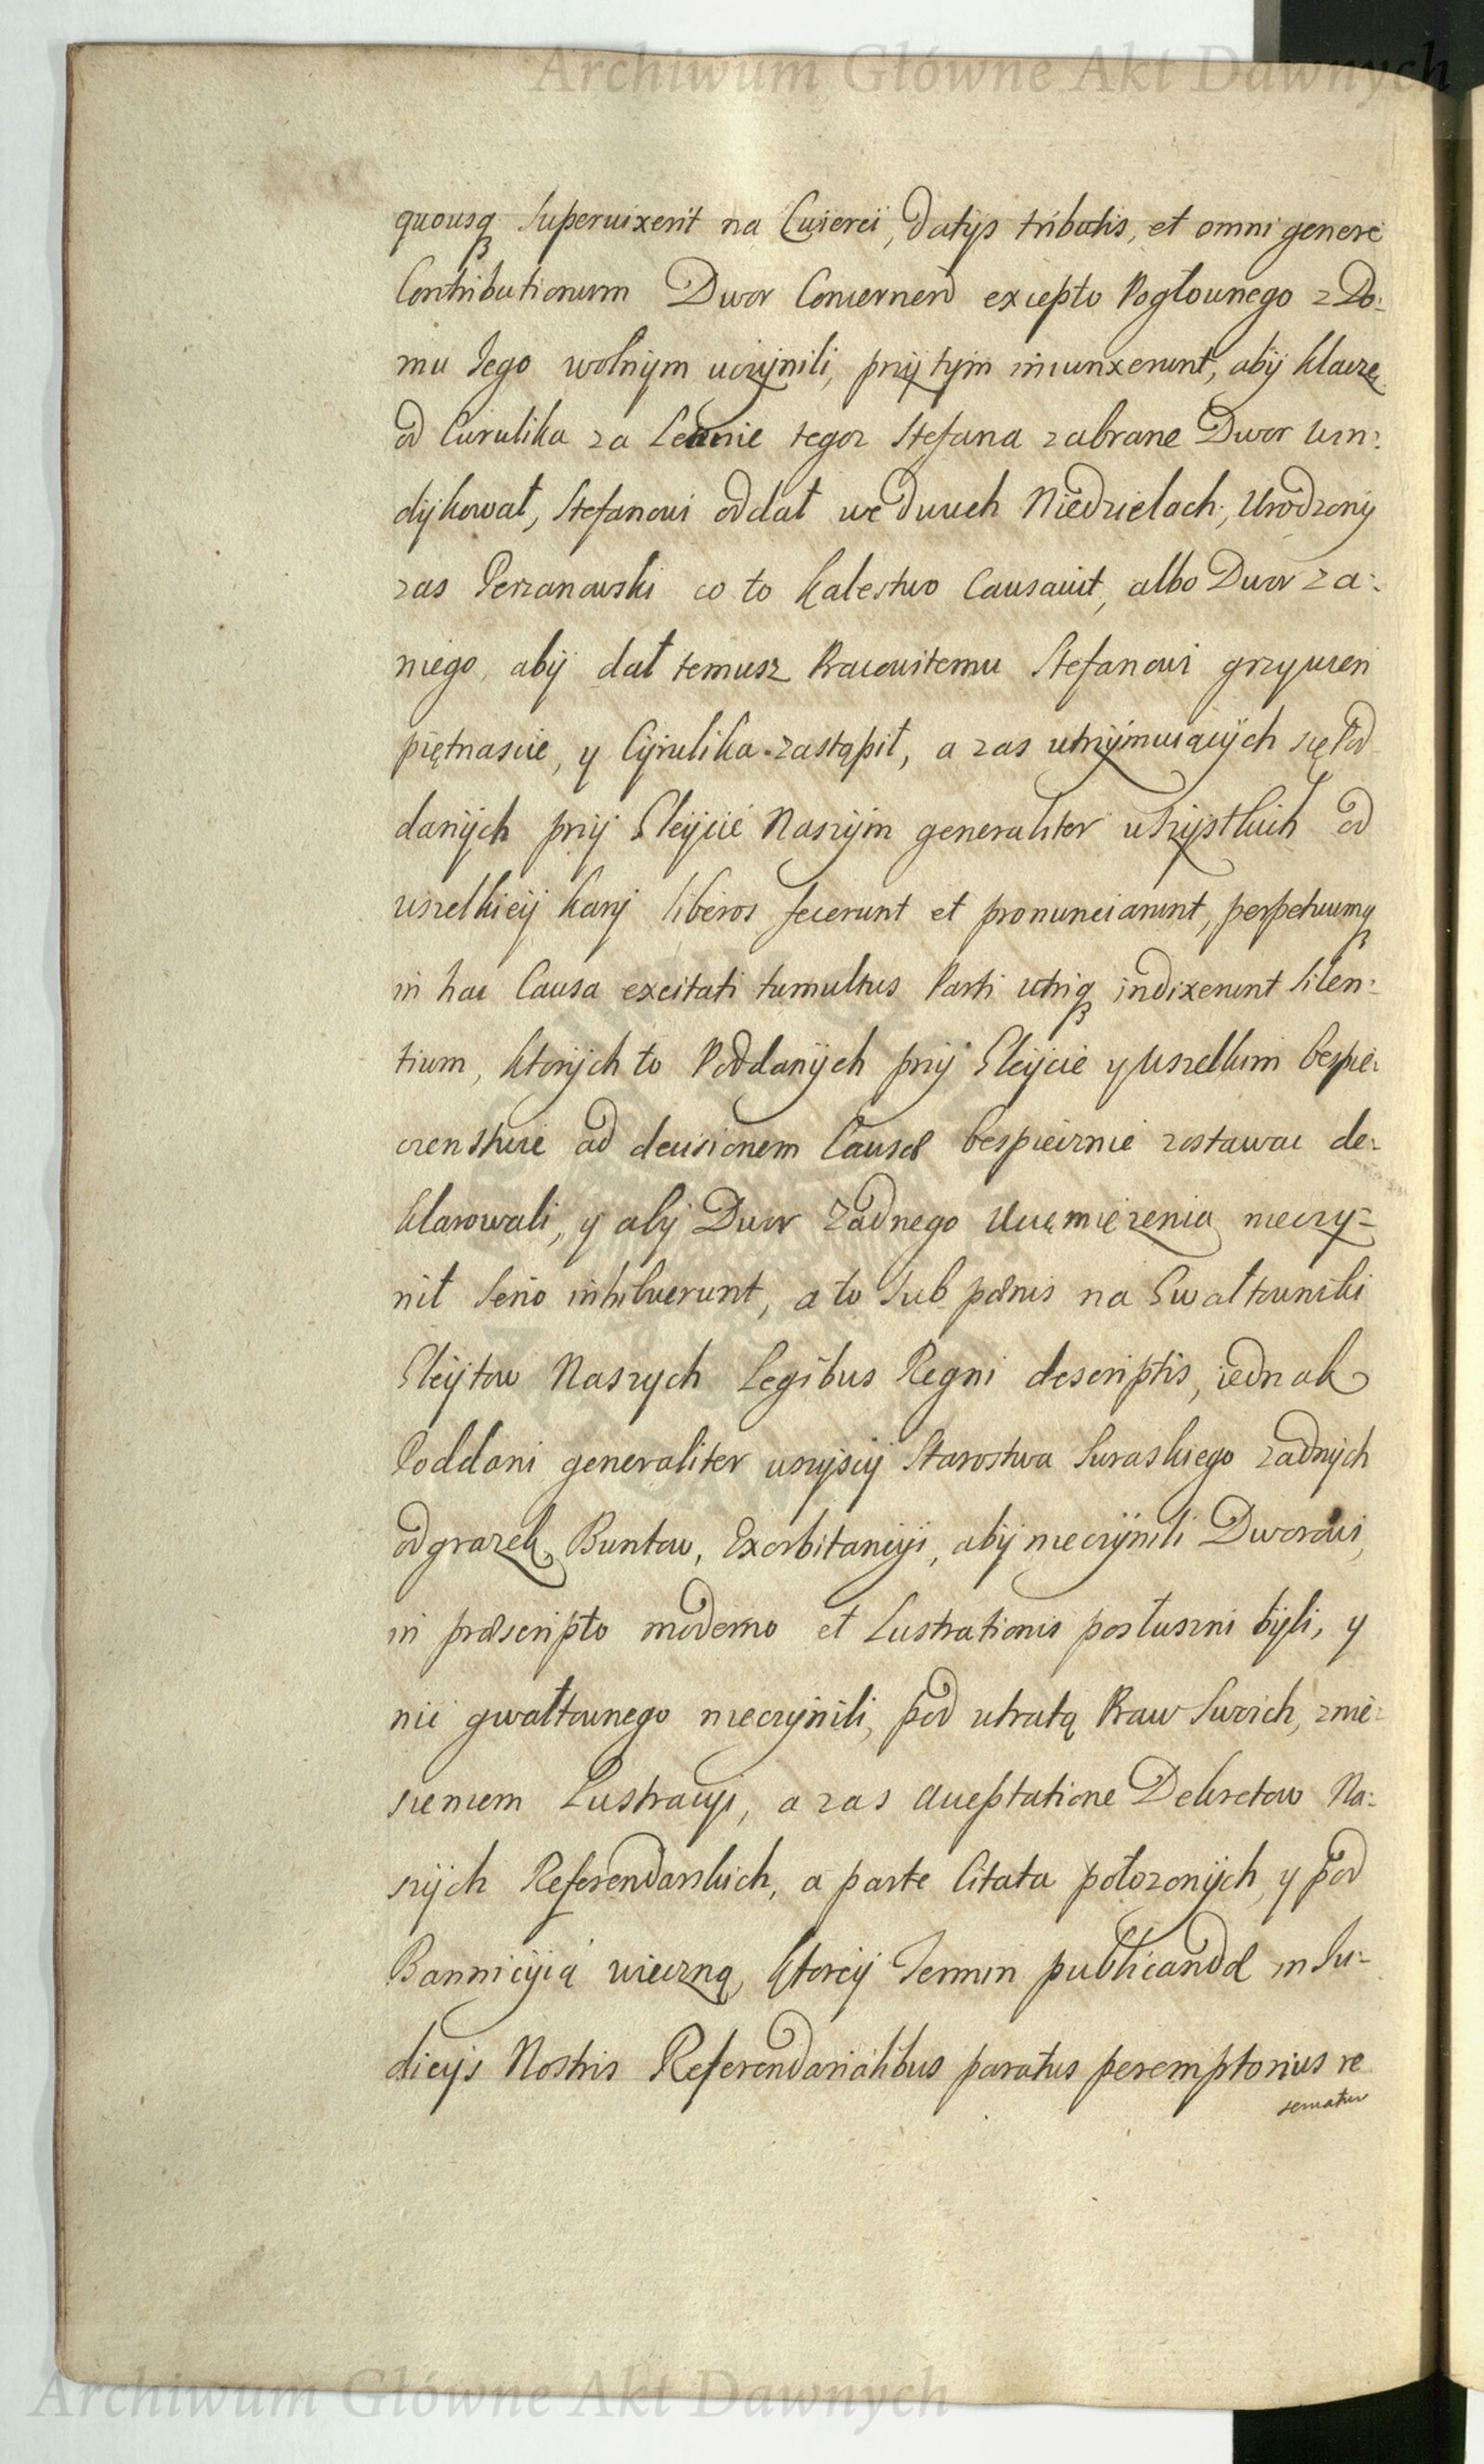 Archiwum Główne Akt Dawnych
quousq superuixerit na Cwierci, datijs tributis, et omni genere
Contributionum Dwor Concernen excepto Pogłownego z Do:
mu Jego wolnym uczÿnili, przÿ tÿm iniunxerunt, abÿ klaczę
od Curulika za Leczenie tegoz Stefana zabrane Dwor win:
dÿkował, Stefanowi oddał we dwuch Niedzielach, Urodzony
zas Perzanowski co to kalestwo Causauit, albo Dwor za:
niego, abÿ dał temusz Pracowitemu Stefanowi grzywien
piętnascie, y Cÿrulika zastąpił, a zas utrzÿmuiącÿch się Pod
danÿch przÿ Gleÿcie Naszÿm generaliter wszÿstkich od
wszelkieÿ karÿ liberos fecerunt et pronunciarunt, perpetuumq
in hac Causa excitati tumultus Parti utriq indixerunt silen:
tium, ktorÿch to Poddanÿch przÿ Gleÿcie y wszelkim bespie:
czenstwie ad decisionem Causæ bespiecznie zostawac de:
klarowali, y abÿ Dwor zadnego Uciemięzenia nieczy=
nił serio inhibuerunt, a to sub pœnis na Gwałtowniki
Gleÿtow Naszych Legibus Regni descriptis, iednak
Poddani generaliter wszÿscÿ Starostwa Suraskiego zadnÿch
odgrozek, Buntow, Exorbitancÿi, abÿ nieczÿnili Dworowi,
in præscripto moderno et Lustrationis posłuszni bÿli, y
nic gwałtownego nieczÿnili, pod utratą Praw Swoich, znie:
sieniem Lustracÿi, a zas acceptatione Dekretow Na:
szÿch Referendarskich, a parte Citata połozonÿch, y pod
Bannicÿią wieczną, ktoreÿ Termin publicandæ in Ju=
dicÿs Nostris Referendarialibus paratus peremptorius re
seruatur
Archiwum Główne Akt Dawnych